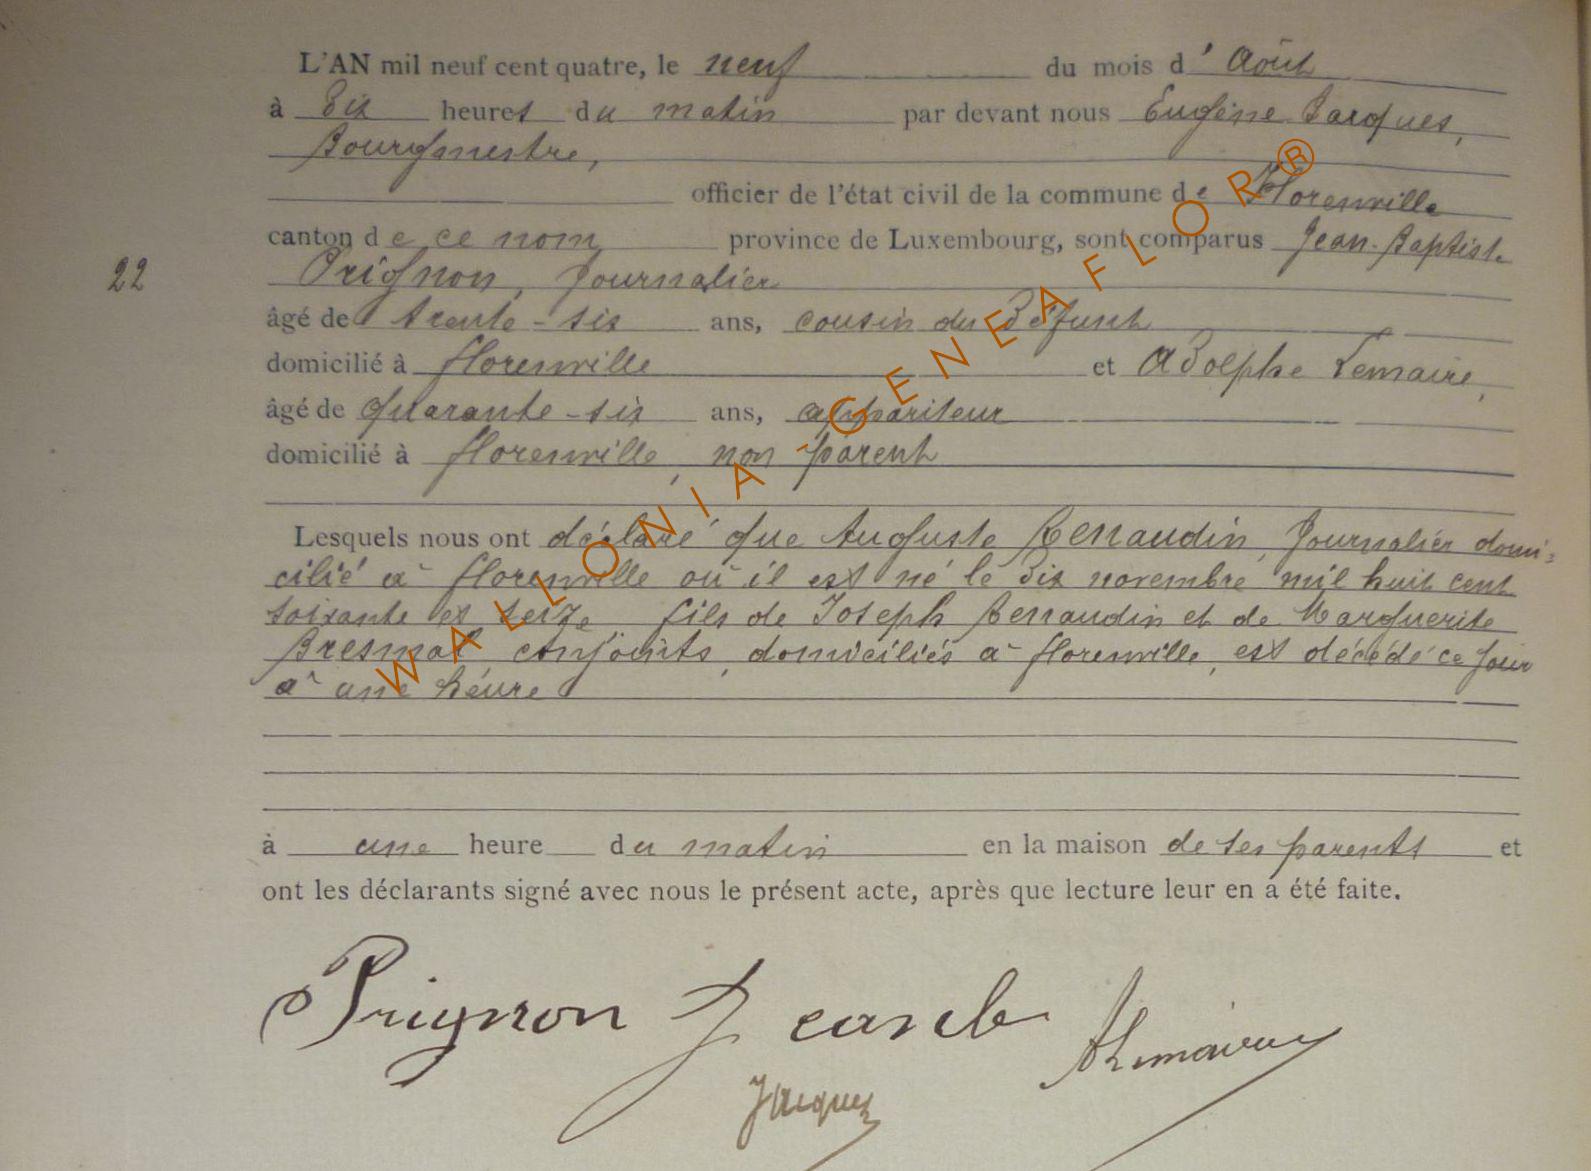 L'AN mil neuf cent quatre, le neuf du mois d' Août
à dix heures du matin par devant nous Eugène Jacques,
Bourgmestre,
officier de l'état civil de la commune de Florenville
canton de ce nom province de Luxembourg, sont comparus Jean-Baptiste
22 Prignon, Journalier
âgé de trente-six ans, cousin du défunt
domicilié à florenville et Adolphe Lemaire,
âgé de quarante-six ans, appariteur
domicilié à florenville, non parent
Lesquels nous ont déclaré que Auguste Renaudin, Journalier domi-
cilié à florenville où il est né le dix novembre mil huit cent
soixante et seize fils de Joseph Renaudin et de Marguerite
Bresmal conjoints, domiciliés à florenville, est décédé ce jour
à une heure
à une heure du matin en la maison de ses parents et
ont les déclarants signé avec nous le présent acte, après que lecture leur en a été faite.
Prignon Jean b
ALemaire
Jacques
WALLONIA-GENEAFLOR®